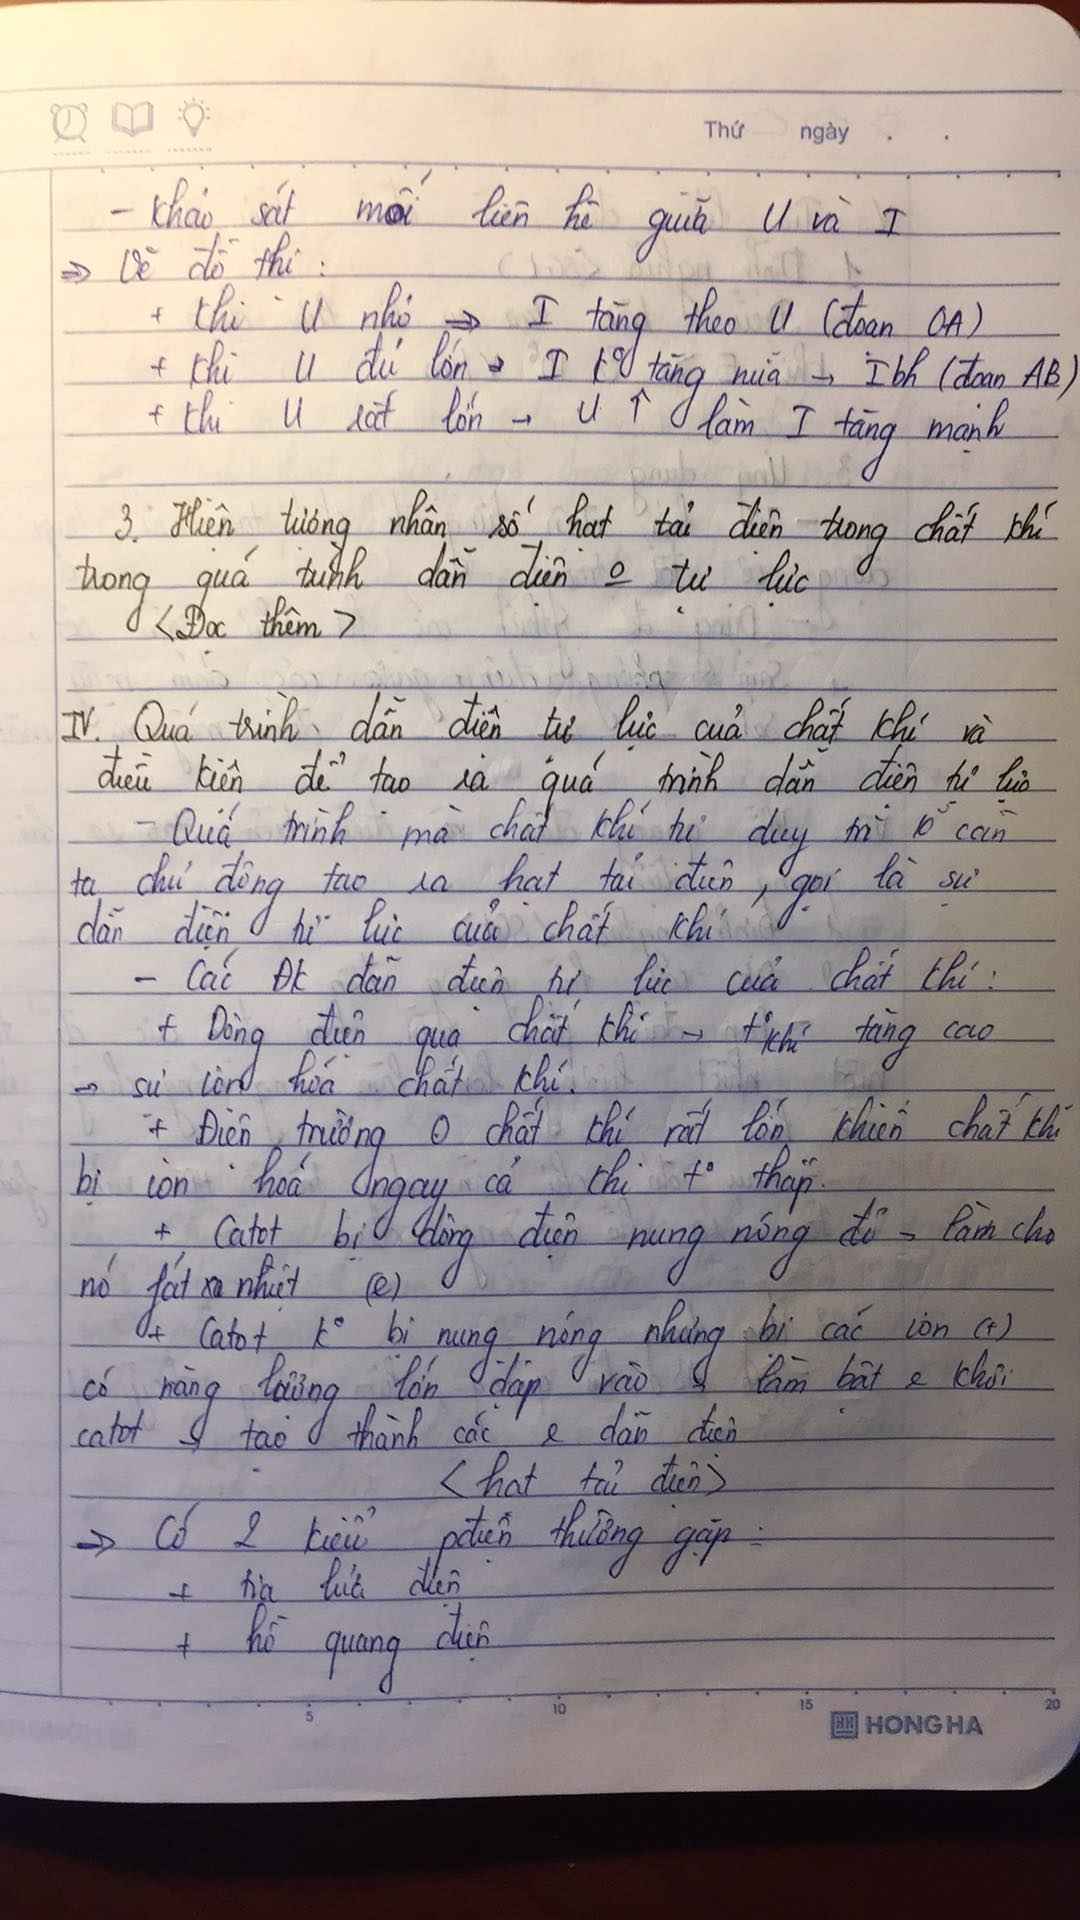 Thứ ngày . .
- Khảo sát mối liên hệ giữa U và I
=> Vẽ đồ thị :
+ Khi U nhỏ => I tăng theo U (đoạn OA)
+ Khi U đủ lớn → I k° tăng nữa → Ibh (đoạn AB)
+ Khi U rất lớn → U ↑ làm I tăng mạnh
3. Hiện tượng nhân số hạt tải điện trong chất khí
trong quá trình dẫn điện o tự lực
<Đọc thêm>
IV. Quá trình dẫn điện tự lực của chất khí và
điều kiện để tạo ra quá trình dẫn điện tự lực
- Quá trình mà chất khí tự duy trì k° cần
ta chủ động tạo ra hạt tải điện, gọi là sự
dẫn điện tự lực của chất khí
- Các ĐK dẫn điện tự lực của chất khí :
+ Dòng điện qua chất khí → t° khí tăng cao
→ sự ion hoá chất khí.
+ Điện trường O chất khí rất lớn khiến chất khí
bị ion hoá ngay cả khi t° thấp.
+ Catot bị dòng điện nung nóng đỏ → làm cho
nó fát xạ nhiệt (e)
+ Catot k° bị nung nóng nhưng bị các ion (+)
có năng lượng lớn đập vào → làm bật e khỏi
catot → tạo thành các e dẫn điện
<hạt tải điện>
=> Có 2 kiểu pđiện thường gặp :
+ tia lửa điện
+ hồ quang điện
5 10 15 20
HONG HA